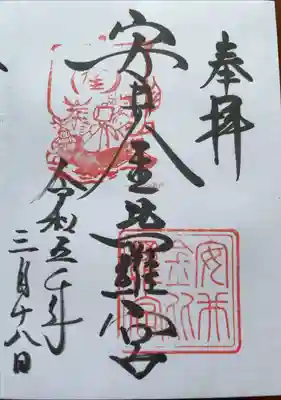 奉拝
安井金比羅宮
令和五年
三月十八日
安井金比羅宮